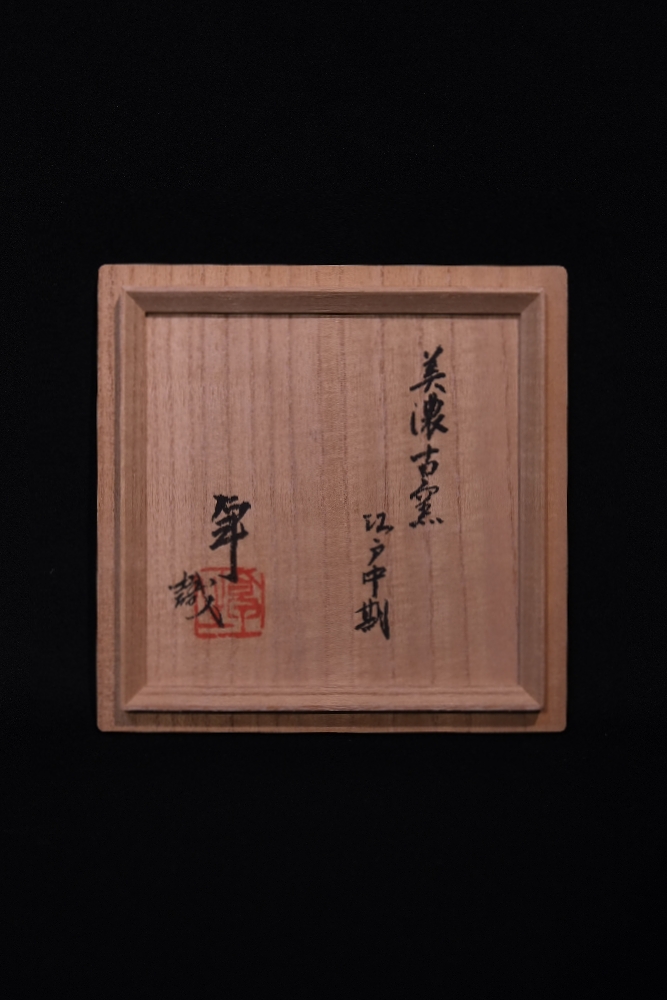 美濃古窯
江戸中期
識